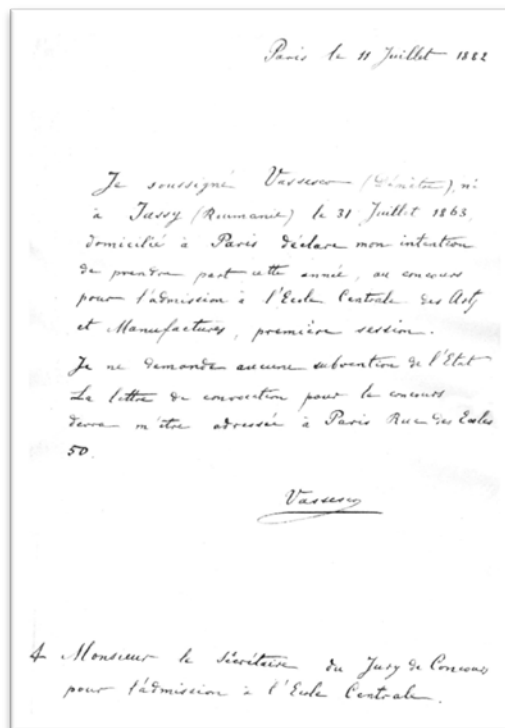 Paris le 11 Juillet 1882
Je soussigné Vassesco (Démitre), né
à Jassy (Roumanie) le 31 Juillet 1863,
domicilié à Paris déclare mon intention
de prendre part cette année, au concours
pour l'admission à l'Ecole Centrale des Arts
et Manufactures, première session.
Je ne demande aucune subvention de l'Etat
La lettre de convocation pour le concours
devra m'être adressée à Paris Rue des Ecoles
50.
Vassesco
Monsieur le Secrétaire du Jury de Concours
pour l'admission à l'Ecole Centrale.